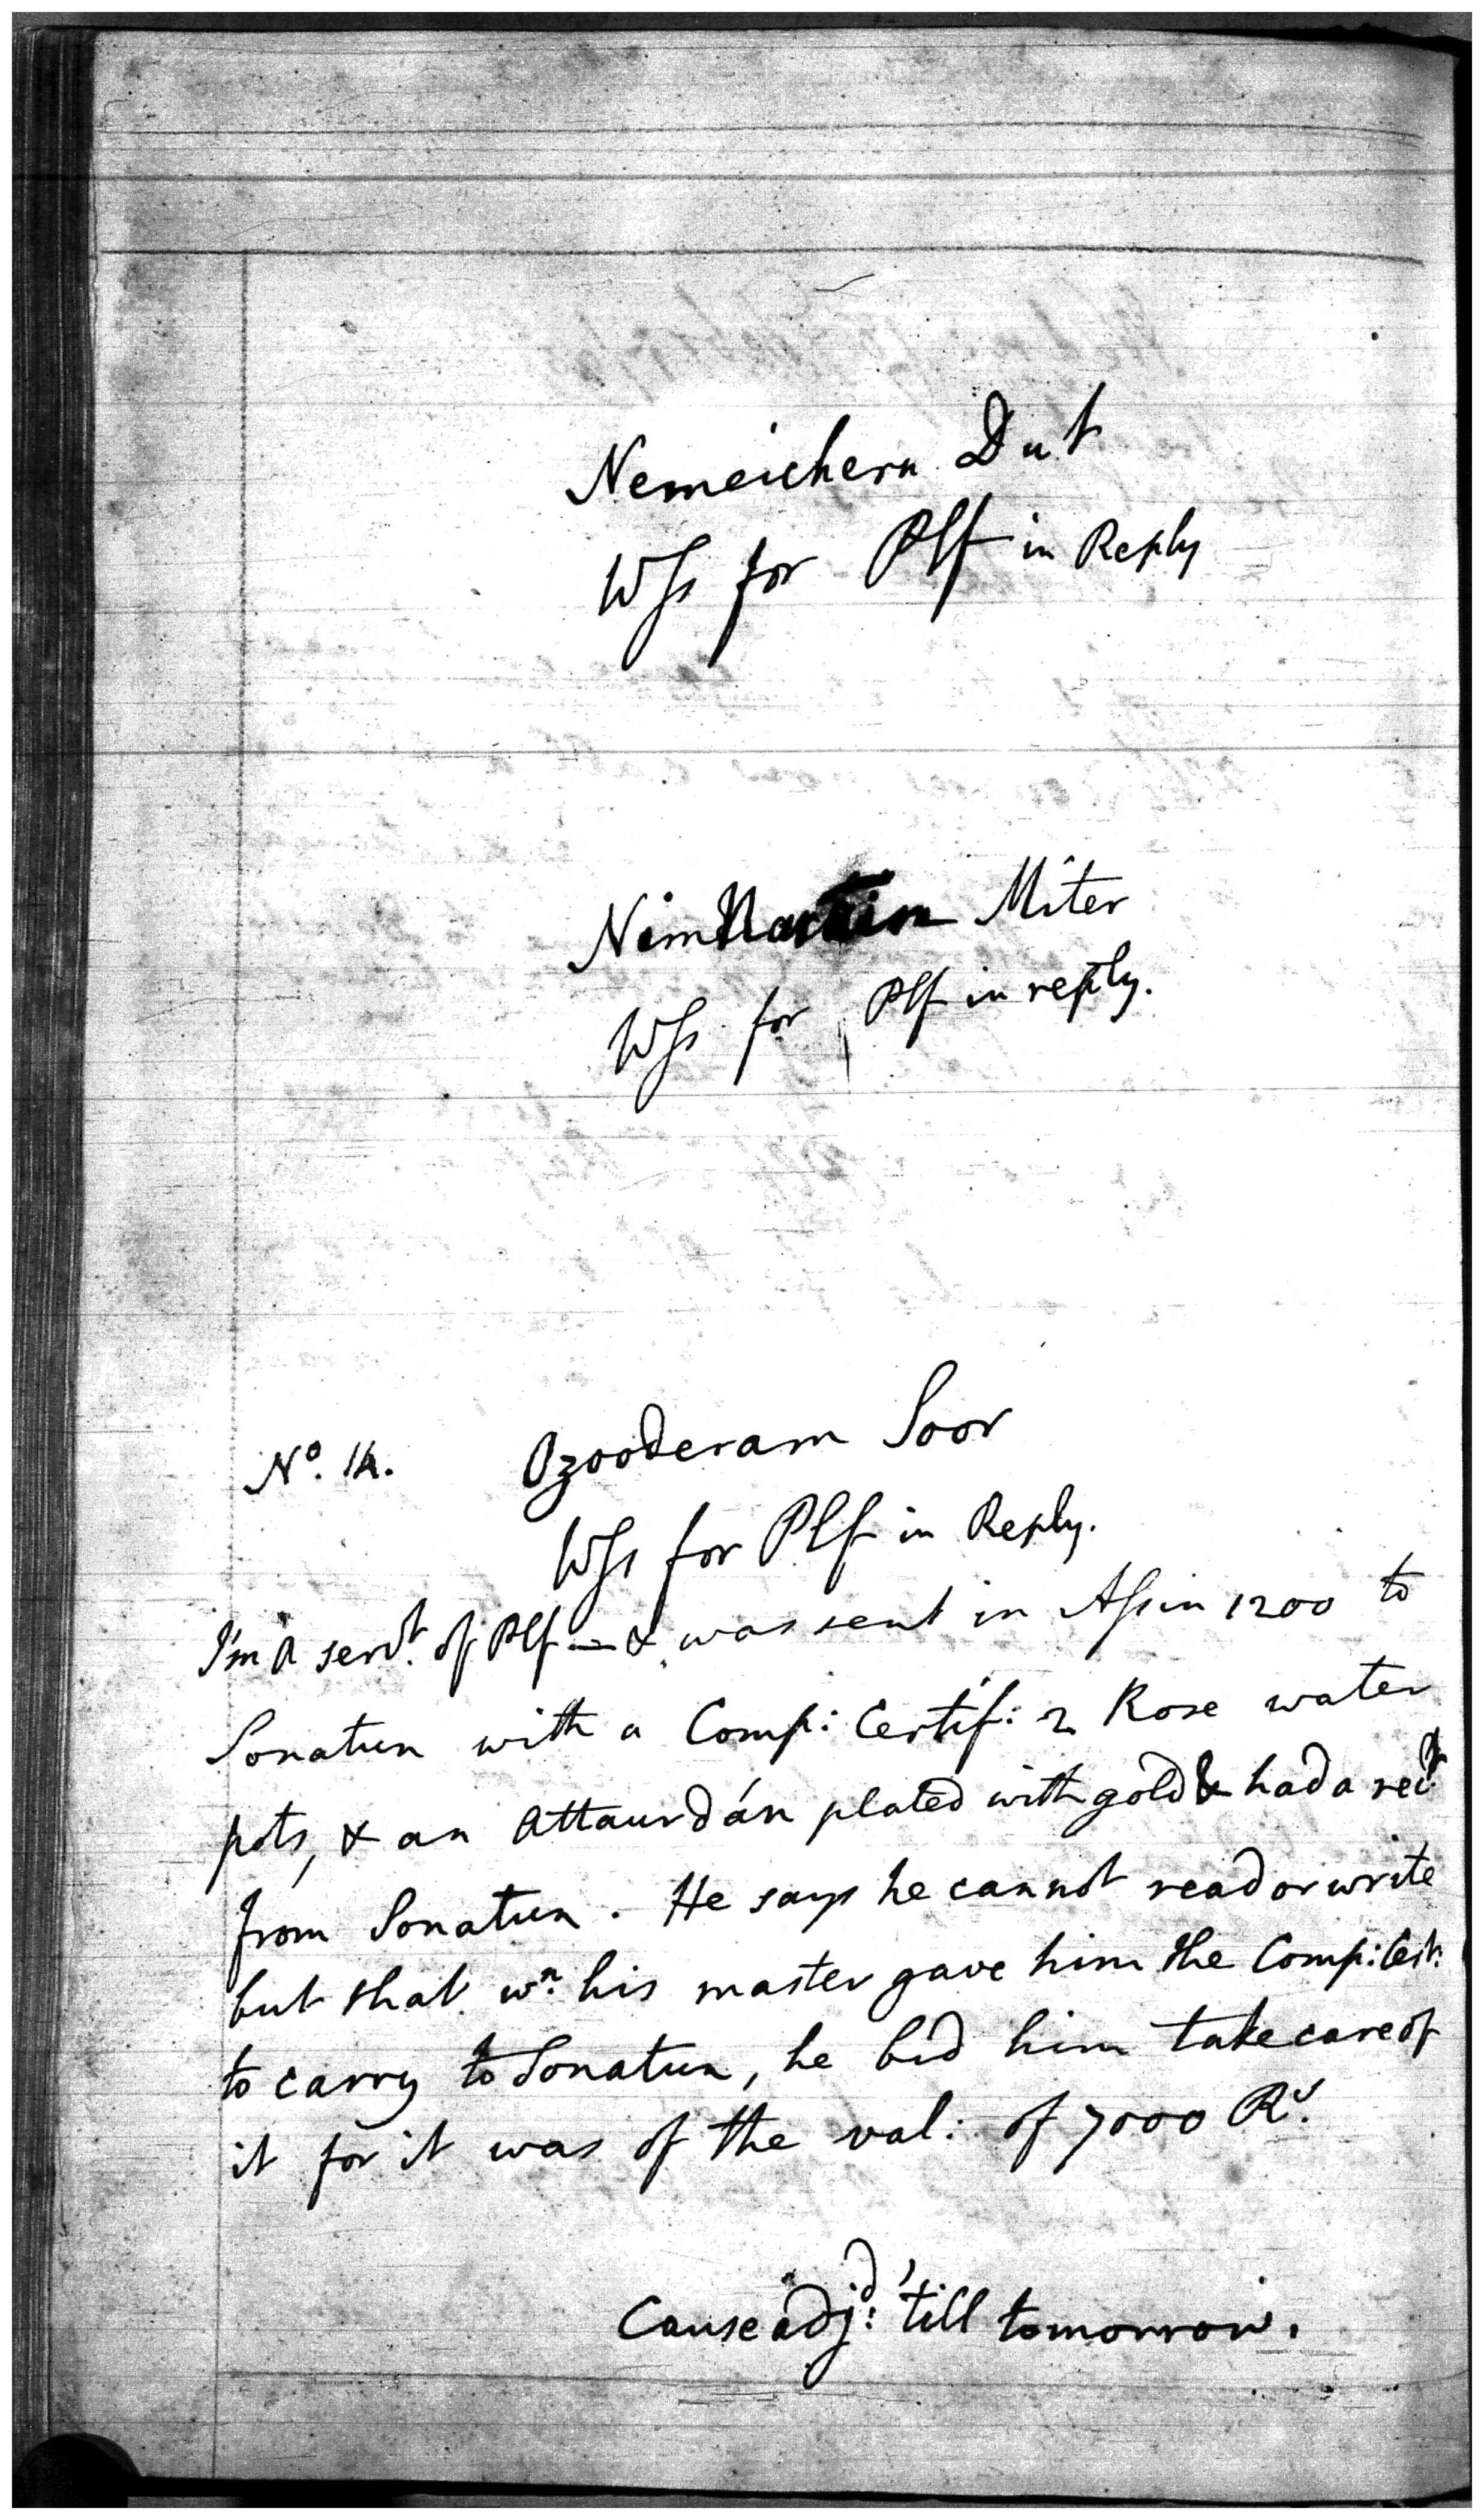 Nemeichern Dut
Wſs for Plf in Reply
Miter
Wſs for Plf in reply.
Nº. 14. Ozooderam Soor
Wſs for Plf in Reply.
I'm a servt. of Plf — & was sent in Aſsin 1200 to
Sonatun with a Comp: Certif: 2 Rose water
pots, & an Attaurdán plated with gold & had a rect.
from Sonatun. He says he cannot read or write
but that wn. his master gave him the Comp: Cert:
to carry to Sonatun, he bid him take care of
it for it was of the val: of 7000 Rs.
Cause adjd: 'till tomorrow.